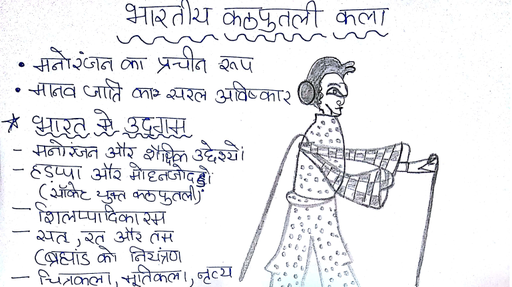 भारतीय कठपुतली कला
• मनोरंजन का प्राचीन रूप
• मानव जाति का सरल अविष्कार
* भारत मे उद्गाम
- मनोरंजन और शैक्षिक उद्देश्यो
- हडप्पा और मोहनजोदड़ो
(सॉकेट युक्त कठपुतली)
- शिलप्पादिकारम
- सत्व, रत और तम
(ब्रह्मांड को नियंत्रण
- चित्रकला, मूर्तिकला, नृत्य